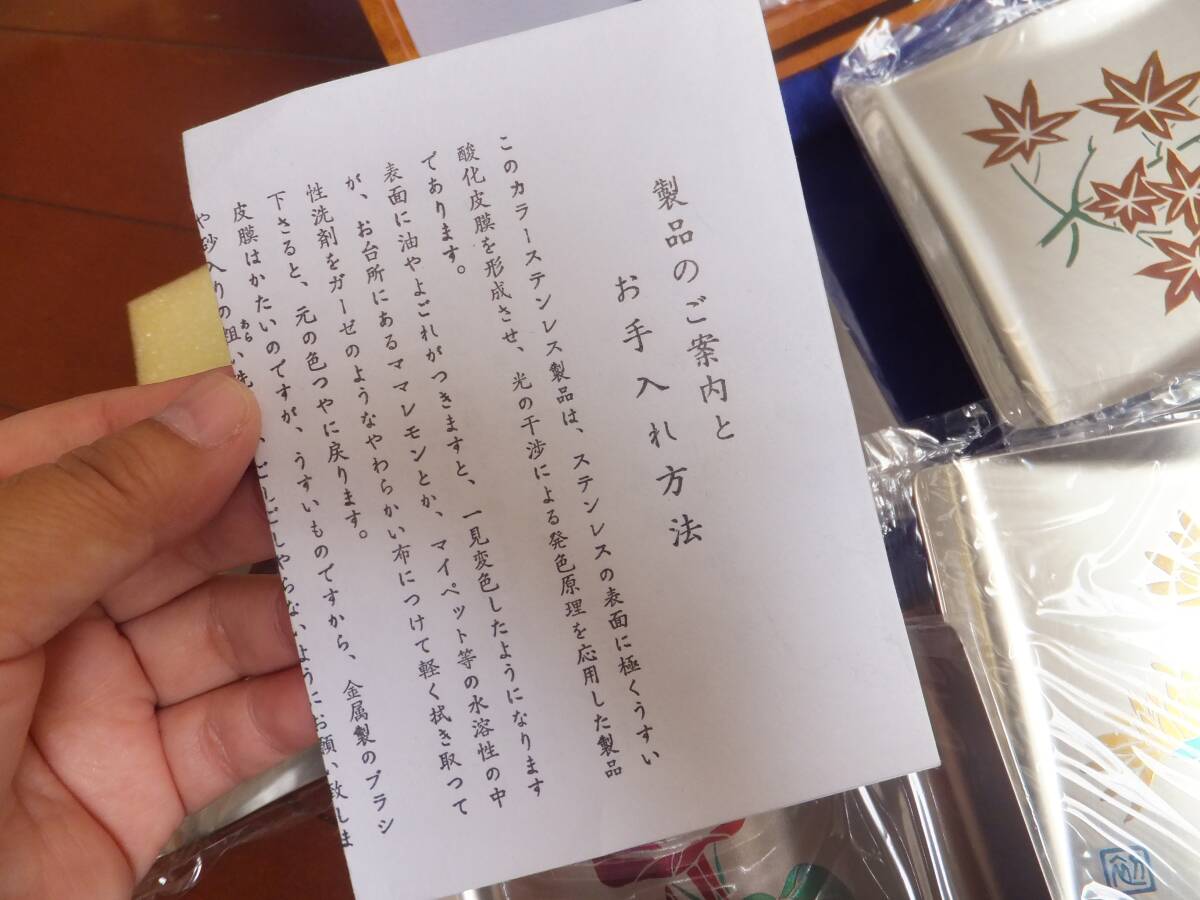 製品のご案内と
お手入れ方法
このカラーステンレス製品は、ステンレスの表面に極くうすい
酸化皮膜を形成させ、光の干渉による発色原理を応用した製品
であります。
表面に油やよごれがつきますと、一見変色したようになります
が、お台所にあるママレモンとか、マイペット等の水溶性の中
性洗剤をガーゼのようなやわらかい布につけて軽く拭き取って
下さると、元の色つやに戻ります。
皮膜はかたいのですが、うすいものですから、金属製のブラシ
や砂入りの粗い洗 ごしごしやらないようにお願い致しま
あら